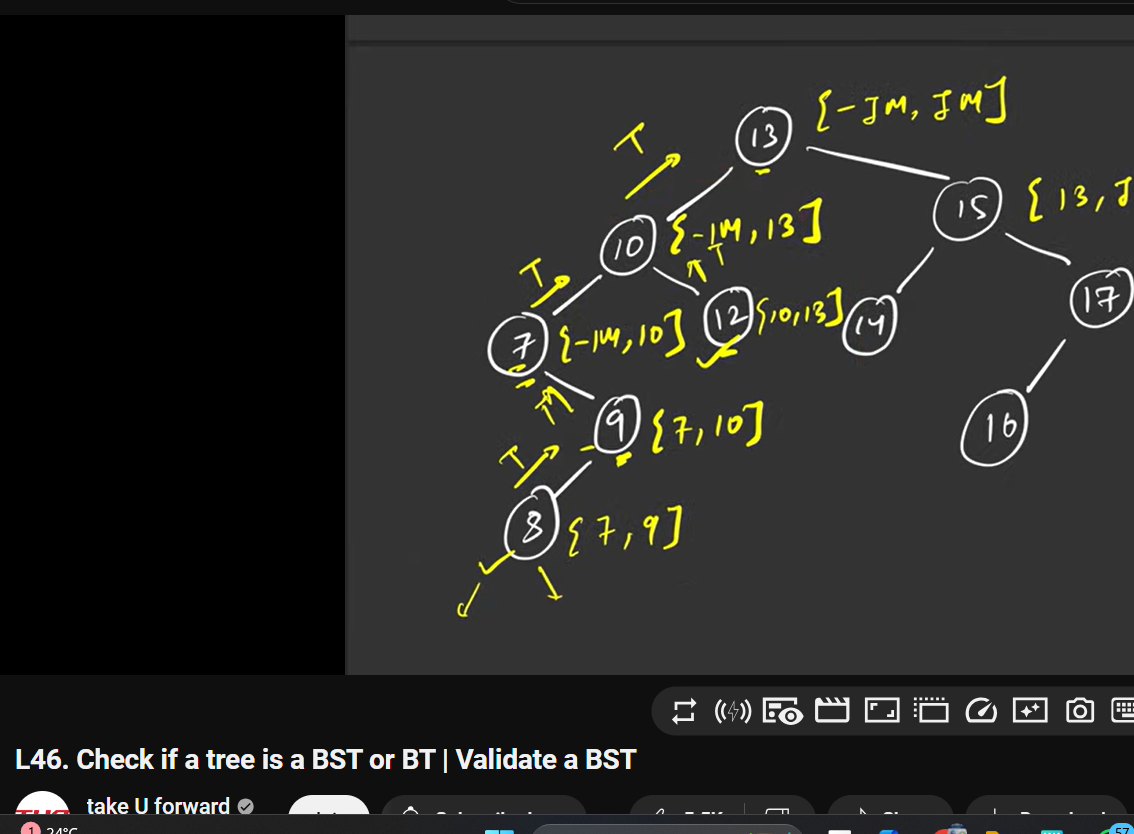 13 [-IM, IM]
T
10 [-IM, 13]
15 [13, I
T
T
7 [-IM, 10]
12 [10, 13]
14
17
T
9 [7, 10]
16
T
8 [7, 9]
L46. Check if a tree is a BST or BT | Validate a BST
take U forward
1 24°C
57